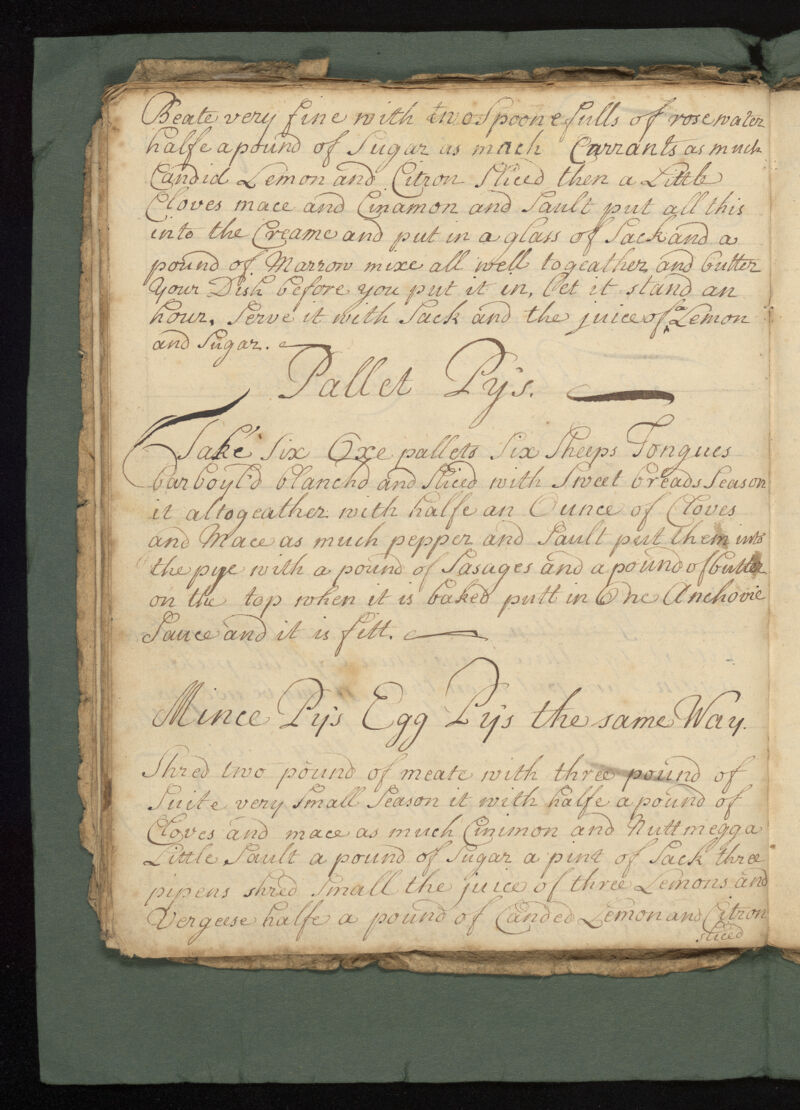 Beate very fine with two Spoonefulls of rose water
halfe a pound of Sugar as much Carrants as much
Candid Lemon and Citron Sliced then a Little
Cloves mace and Cinamon and Sault put all this
into the Creame and put in a glass of Sack and a
pound of Marrow mixe all well togeather and butter
Your Dish before you put it in, Let it stand an
hour, Serve it with Sack and the juice of a Lemon
and Sugar.
Pallet Pys.
Take Six Oxe pallets Six Sheeps Tongues
parboyl'd blanchd and Sliced with Sweet breads Season
it altogeather with halfe an Ounce of Cloves
and Mace as much pepper and Sault put them into
the pye with a pound of Sasuges and a pound of butter
on the top when it is baked putt in One Anchovie
Sauce and it is fitt.
Mince Pys Egg Pys the same Way.
Shred two pound of meate with three pound of
Suite very Small Season it with halfe a pound of
Cloves and mace as much Cinimon and Nuttmegg a
Little Sault a pound of Sugar a pint of Sack three
pipens shred Small the juice of three Lemons and
Vergeese halfe a pound of Canded Lemon and Citron
sliced